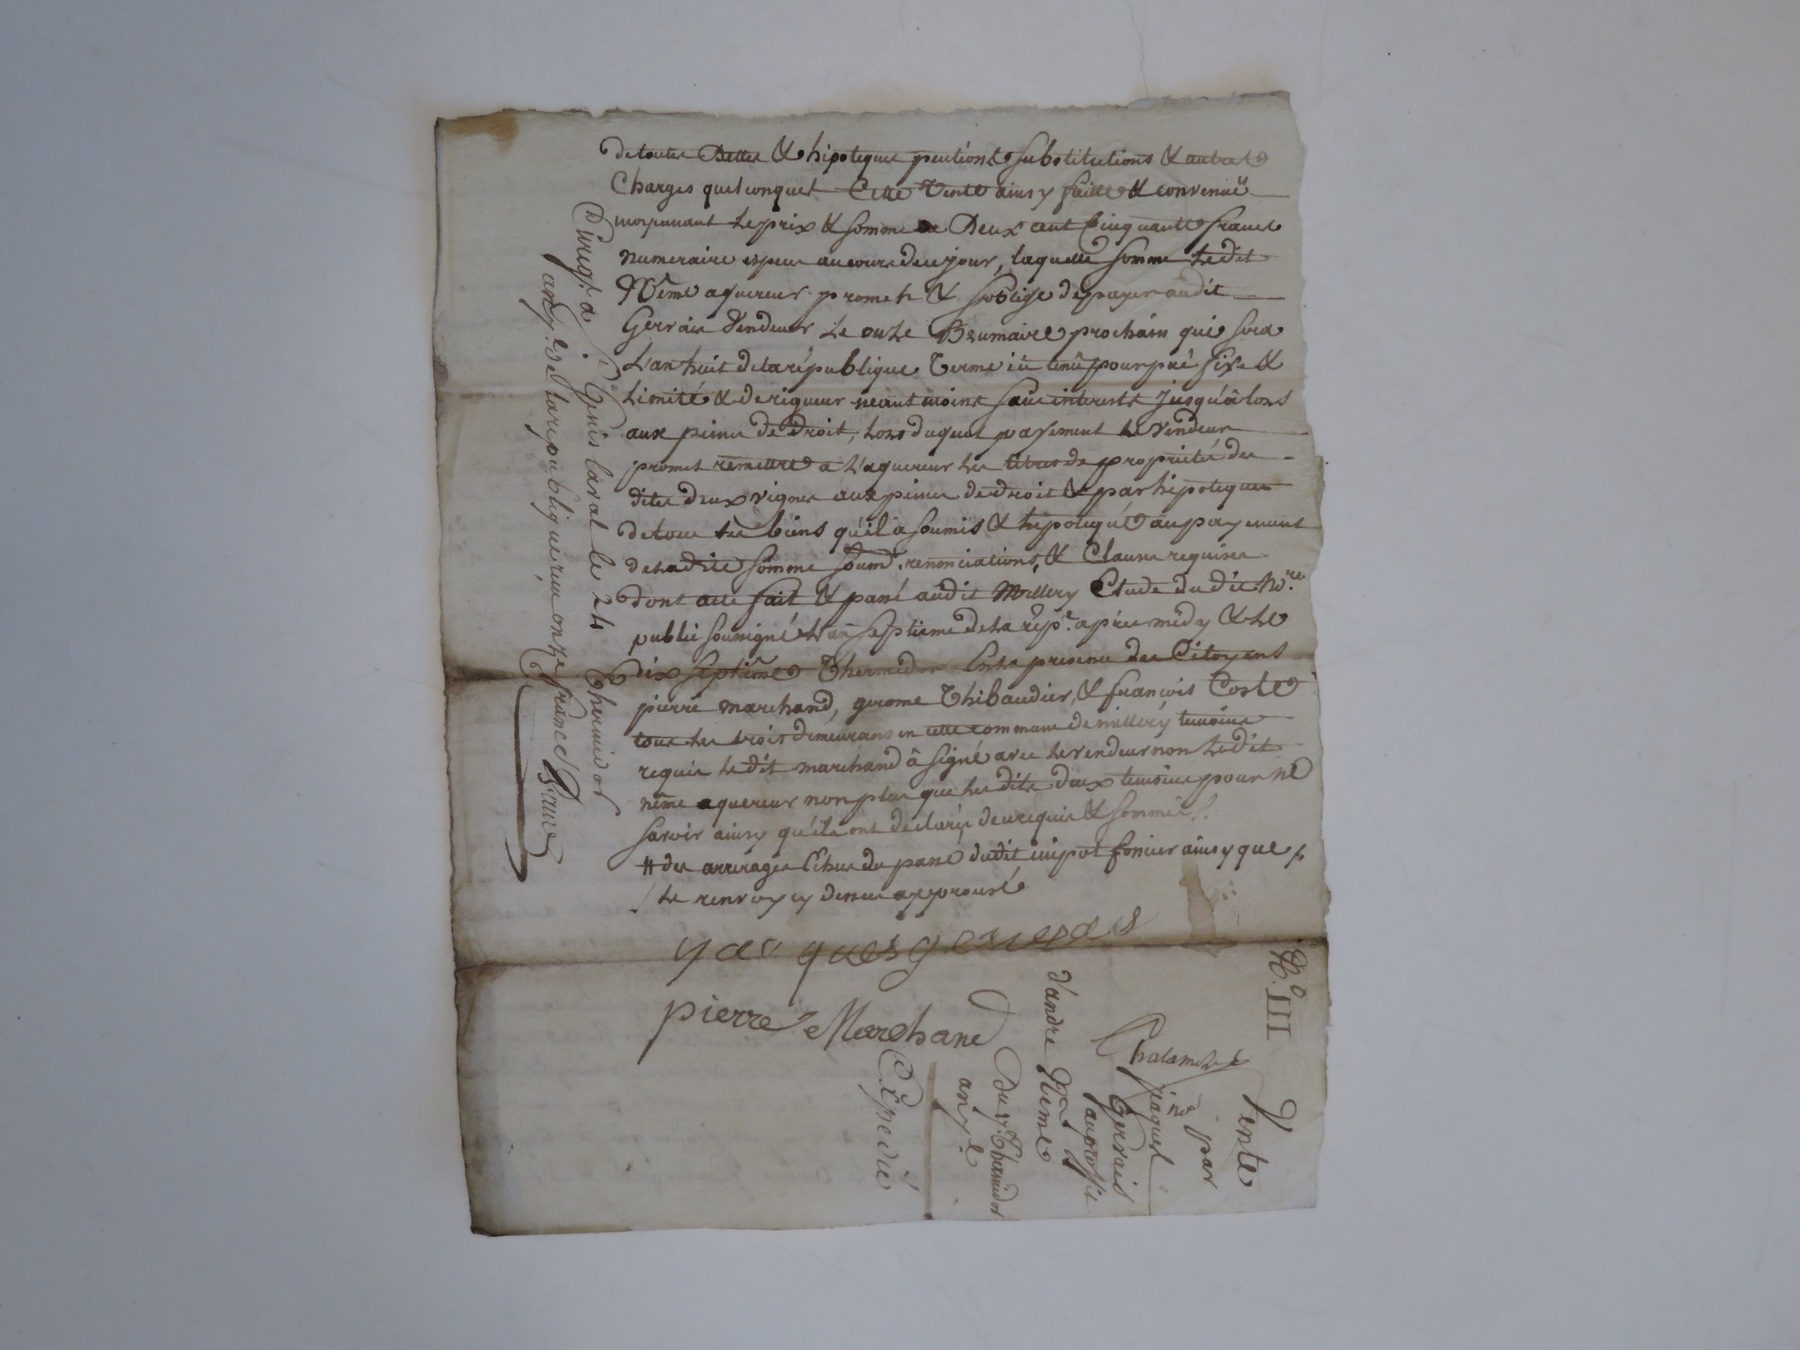 de toutes Dettes & hipoteques pentions substitutions & autres
Charges quelconques Cette Vente ainsy faitte & convenuë
moyenant le prix & somme de Deux cent Cinquante francs
numeraire espece au cours de ce jour, laquelle somme le dit
Nême aquereur promet & s'oblige de payer audit
Gervais Vendeur le onze Brumaire prochain qui sera
L'an huit de la république Terme icÿ tenû pour pré fixe &
Limité & de rigueur neant moins sans interets jusqu'âlors
aux peines de Droit, Lors duquel payement le Vendeur
promet remettre a L'aquereur les titres de propriété des
dites deux vignes aux peines de droit & par hipoteques
de tous ses biens qu'il a soumis & hipotequé au payement
de la dite somme soumd. renonciations & Clauses requises
Dont acte fait & passé audit Millery Etude du dit No.re
public soussigné L'an septieme de la rép.e après midy & le
Dix septième Thermidor En la presence des Citoyens
pierre marchand, gerome Thibaudier, & françois Coste
tous les trois demeurans en cette commune de millery temoins
requis le dit marchand â signé avec le vendeur non le dit
nême aquereur non plus que les dits deux temoins pour ne
savoir ainsy qu'ils ont declaré de ce requis & sommés.
# des arrerages Echus du passé dudit impot foncier ainsy que
/ le renvoy cy dessus approuvé
yacques gervais
pierre Marchand
Enregt. a Genis laval le 24 thermidor
an 7.e De la republique reçu onze francs
N.o III
Vente
par
Jaques
Gervais
au proffit
d'andre Neme
Du 17. Thermidor
an 7.e
Expedié